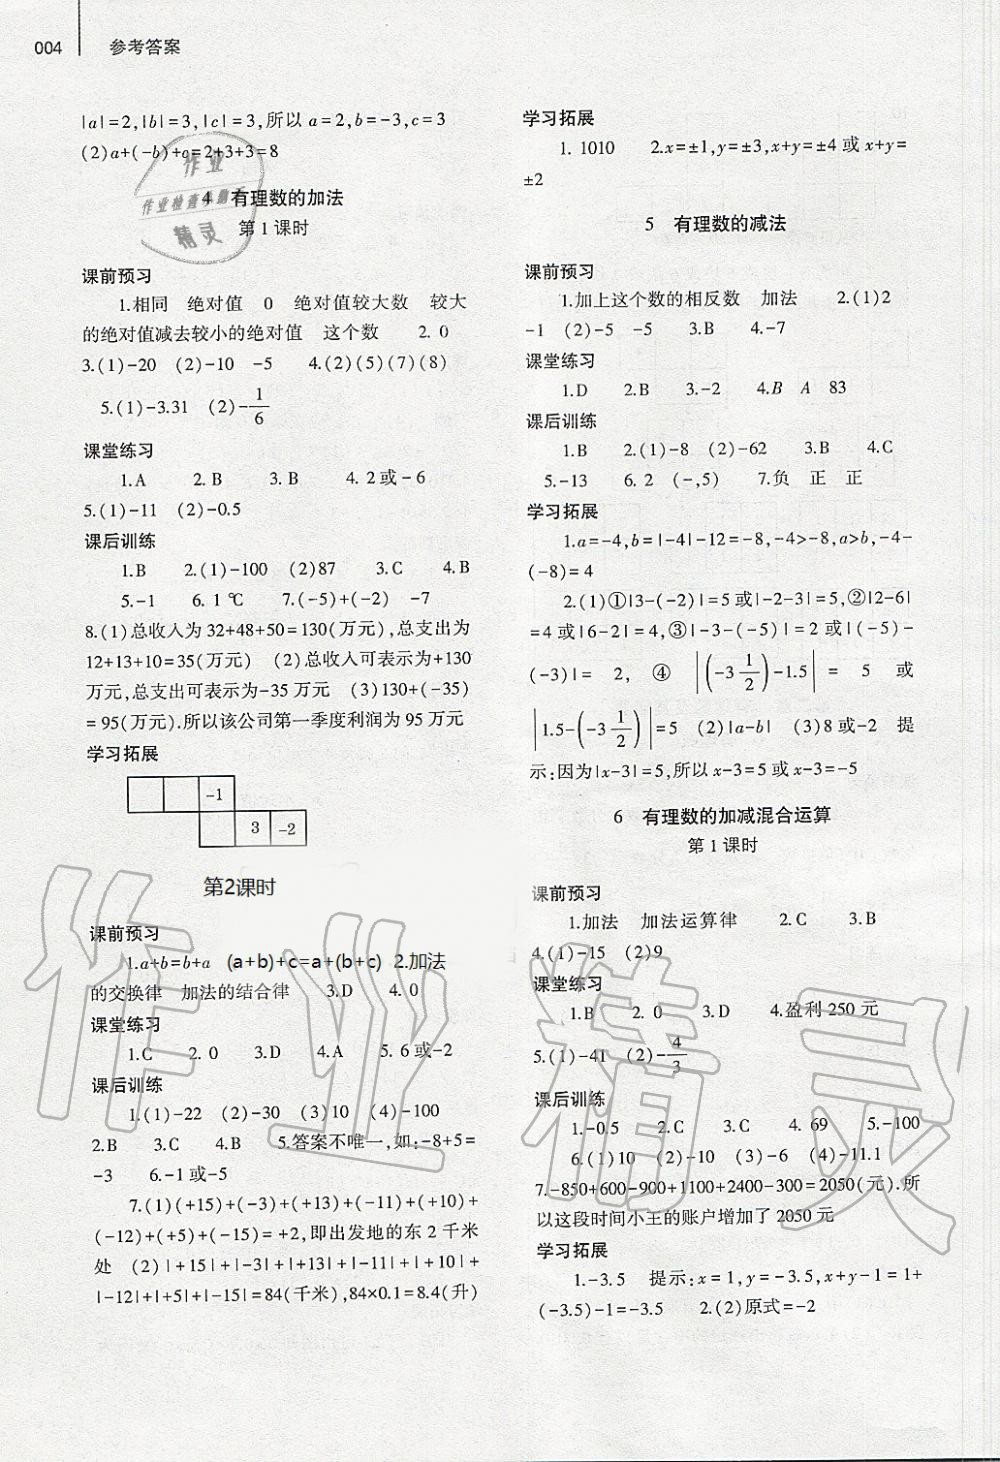 004 参考答案
|a|=2,|b|=3,|c|=3,所以a=2,b=-3,c=3
(2)a+(-b)+c=2+3+3=8
4 有理数的加法
第1课时
课前预习
1.相同 绝对值 0 绝对值较大数 较大
的绝对值减去较小的绝对值 这个数 2. 0
3.(1)-20 (2)-10 -5 4.(2)(5)(7)(8)
5.(1)-3.31 (2)-1/6
课堂练习
1.A 2. B 3. B 4. 2或-6
5.(1)-11 (2)-0.5
课后训练
1.B 2.(1)-100 (2)87 3.C 4.B
5.-1 6. 1 ℃ 7.(-5)+(-2) -7
8.(1)总收入为32+48+50=130(万元),总支出为
12+13+10=35(万元) (2)总收入可表示为+130
万元,总支出可表示为-35万元 (3)130+(-35)
=95(万元).所以该公司第一季度利润为95万元
学习拓展
-1
3 -2
第2课时
课前预习
1.a+b=b+a (a+b)+c=a+(b+c) 2.加法
的交换律 加法的结合律 3.D 4. 0
课堂练习
1.C 2. 0 3.D 4.A 5. 6或-2
课后训练
1.(1)-22 (2)-30 (3)10 (4)-100
2.B 3.C 4.B 5.答案不唯一,如:-8+5=
-3 6.-1或-5
7.(1)(+15)+(-3)+(+13)+(-11)+(+10)+
(-12)+(+5)+(-15)=+2,即出发地的东2千米
处 (2)|+15|+|-3|+|+13|+|-11|+|+10|+
|-12|+|+5|+|-15|=84(千米),84×0.1=8.4(升)
学习拓展
1. 1010 2.x=±1,y=±3,x+y=±4或x+y=
±2
5 有理数的减法
课前预习
1.加上这个数的相反数 加法 2.(1)2
-1 (2)-5 -5 3.B 4.-7
课堂练习
1.D 2.B 3.-2 4.B A 83
课后训练
1.B 2.(1)-8 (2)-62 3.B 4.C
5.-13 6. 2 (-,5) 7.负 正 正
学习拓展
1.a=-4,b=|-4|-12=-8,-4>-8,a>b,-4-
(-8)=4
2.(1)①|3-(-2)|=5或|-2-3|=5,②|2-6|
=4或|6-2|=4,③|-3-(-5)|=2或|(-5)-
(-3)|= 2, ④ |(-3 1/2)-1.5| = 5 或
|1.5-(-3 1/2)|=5 (2)|a-b| (3)8或-2 提
示:因为|x-3|=5,所以x-3=5或x-3=-5
6 有理数的加减混合运算
第1课时
课前预习
1.加法 加法运算律 2.C 3.B
4.(1)-15 (2)9
课堂练习
1.B 2. 0 3.D 4.盈利250元
5.(1)-41 (2)-4/3
课后训练
1.-0.5 2.C 3.C 4. 69 5.-100
6.(1)10 (2)-10 (3)-6 (4)-11.1
7.-850+600-900+1100+2400-300=2050(元).所
以这段时间小王的账户增加了2050元
学习拓展
1.-3.5 提示:x=1,y=-3.5,x+y-1=1+
(-3.5)-1=-3.5 2.(2)原式=-2
作业
精灵
作业精灵